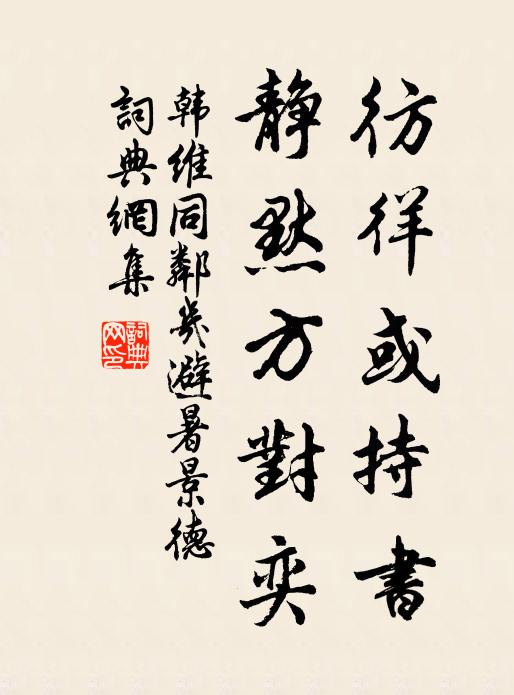 彷徉或持書
静默方對奕
韩維同鄰幾避暑景德
詞典網集
詞典网印